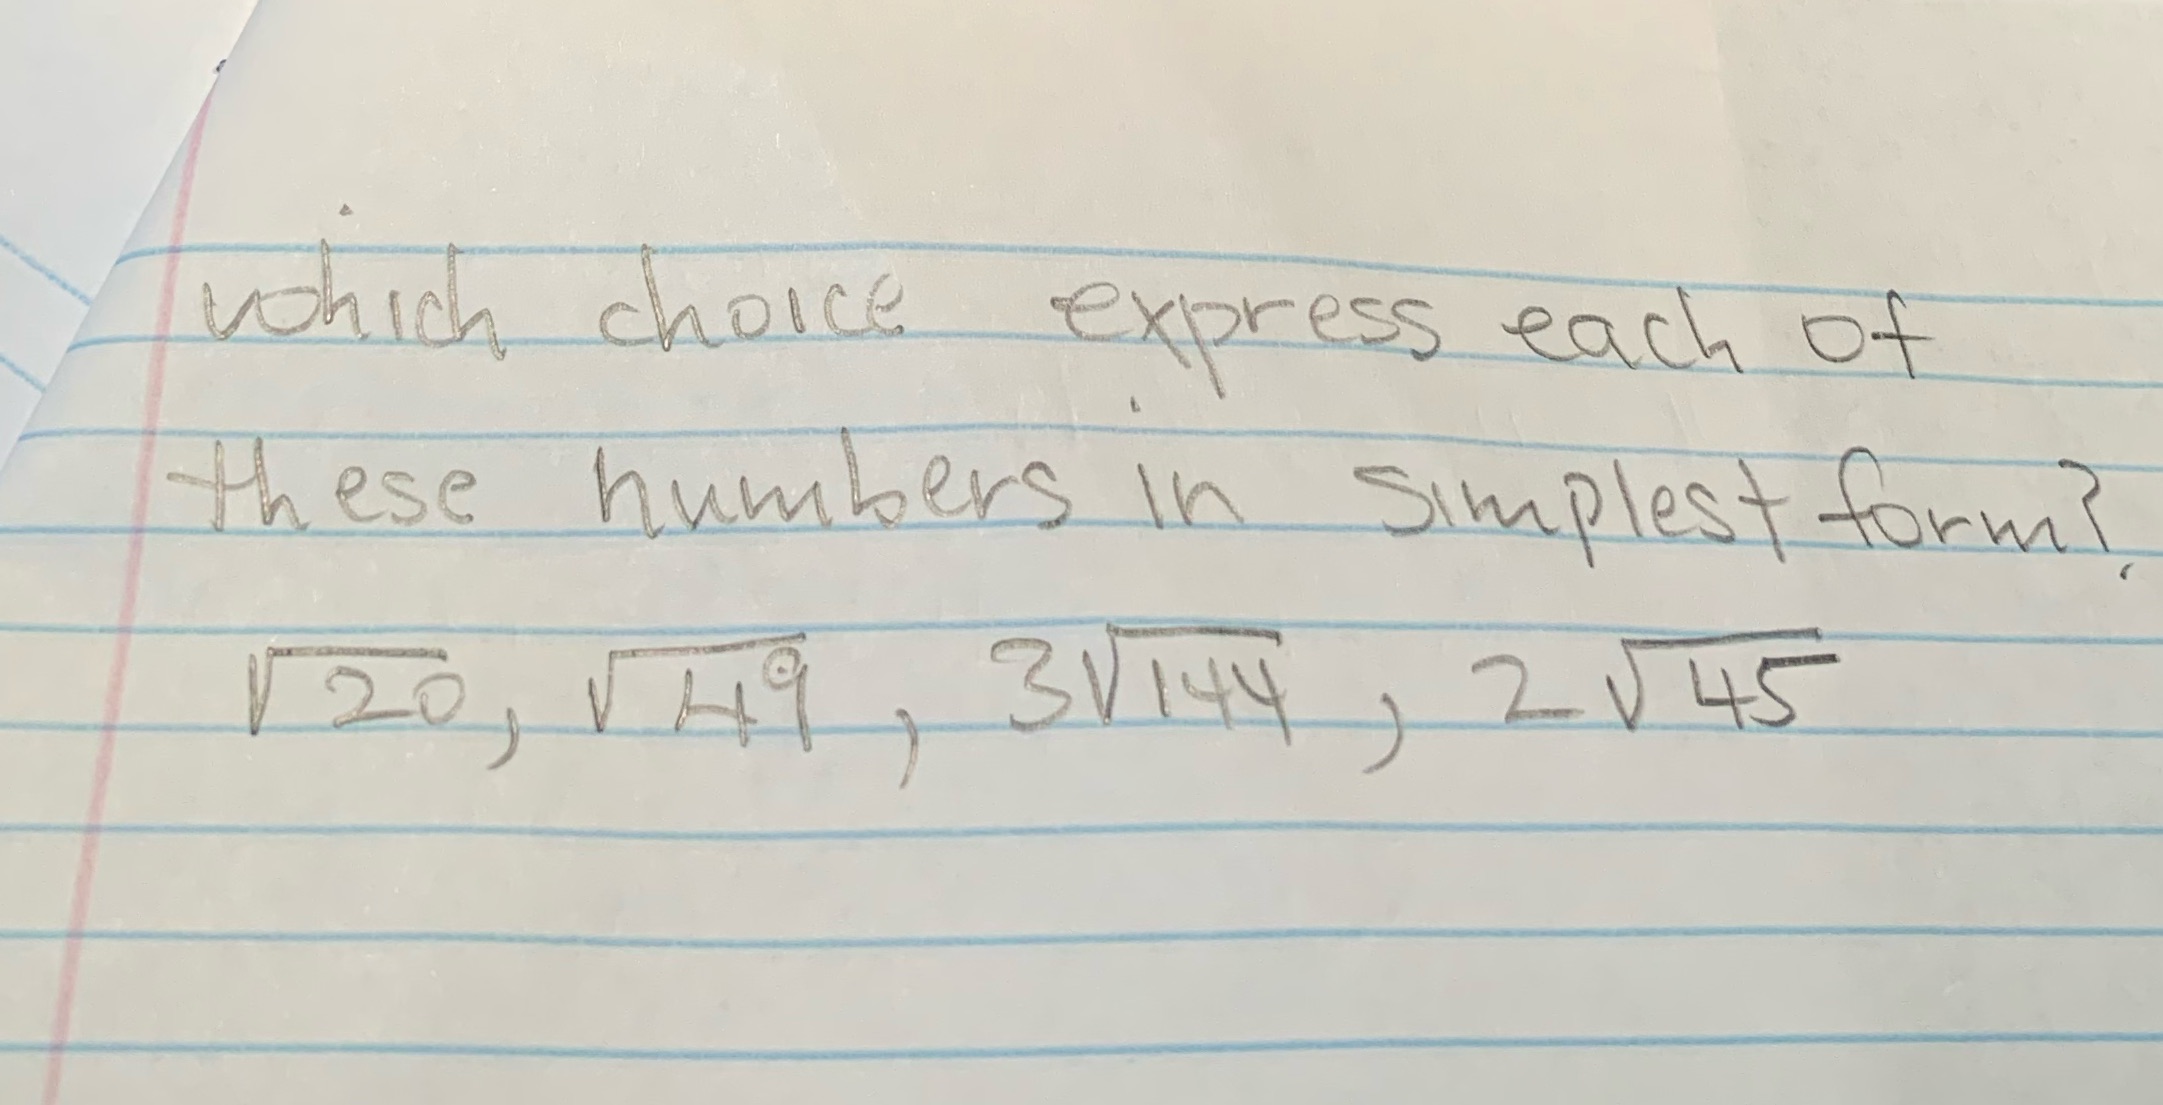 which choice express each of
these numbers in simplest form?
√20, √49, 3√144, 2√45